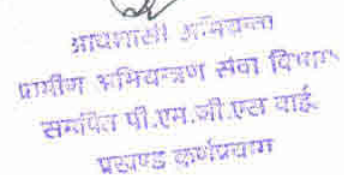 अधिशासी अभियन्ता
ग्रामीण अभियन्त्रण सेवा विभाग
समर्पित पी.एम.जी.एस वाई.
प्रखण्ड कर्णप्रयाग